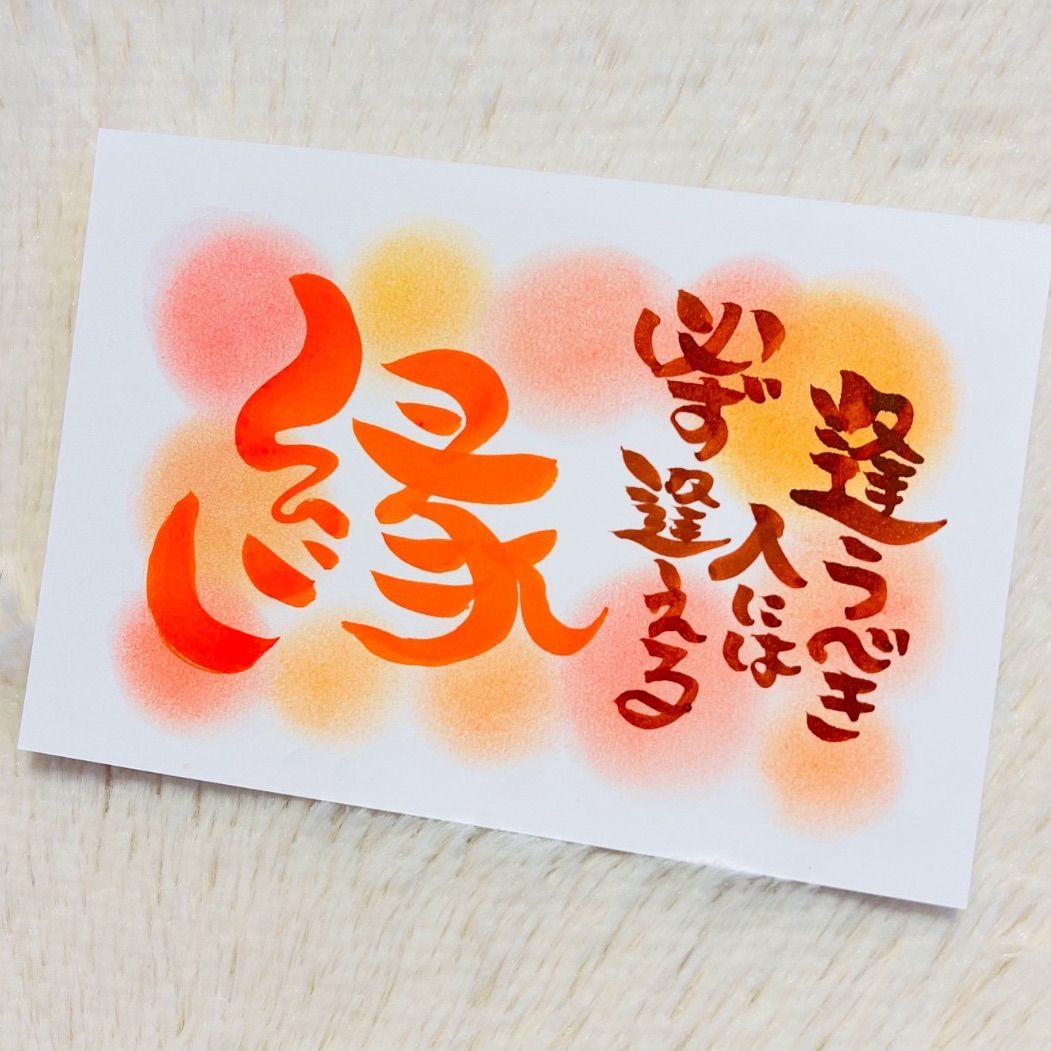 縁
逢うべき
人には
必ず
逢える